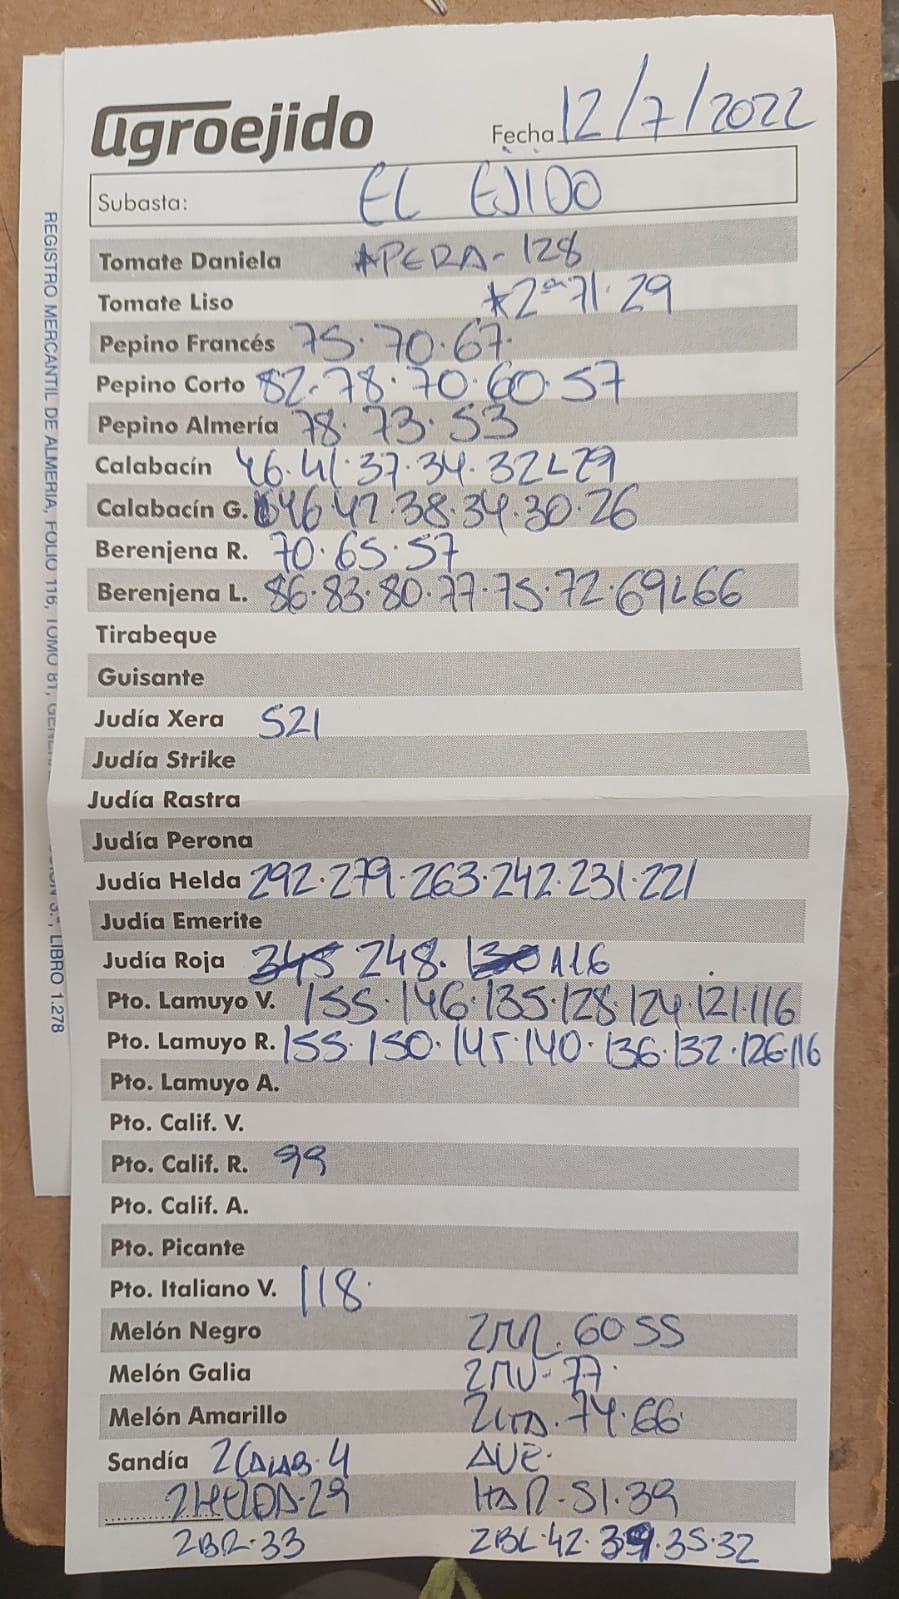 agroejido Fecha 12/7/2022
Subasta: EL EJIDO
Tomate Daniela *PERA - 128
Tomate Liso *2ª 71·29
Pepino Francés 75·70·67·
Pepino Corto 82·78·70·60·57
Pepino Almería 78·73·53
Calabacín 46·41·37·34·32L29
Calabacín G. 46·42·38·34·30·26
Berenjena R. 70·65·57
Berenjena L. 86·83·80·77·75·72·69L66
Tirabeque
Guisante
Judía Xera 521
Judía Strike
Judía Rastra
Judía Perona
Judía Helda 292·279·263·242·231·221
Judía Emerite
Judía Roja 345 248· 130 116
Pto. Lamuyo V. 155·146·135·128·124·121·116
Pto. Lamuyo R. 155·150·145·140·136·132·126·116
Pto. Lamuyo A.
Pto. Calif. V.
Pto. Calif. R. 99
Pto. Calif. A.
Pto. Picante
Pto. Italiano V. 118·
Melón Negro 60 55
Melón Galia 77·
Melón Amarillo 74·66·
Sandía 4
29 51·39
2BR·33 2BL·42·39·35·32
REGISTRO MERCANTIL DE ALMERIA, FOLIO 116, TOMO 81,
LIBRO 1.278